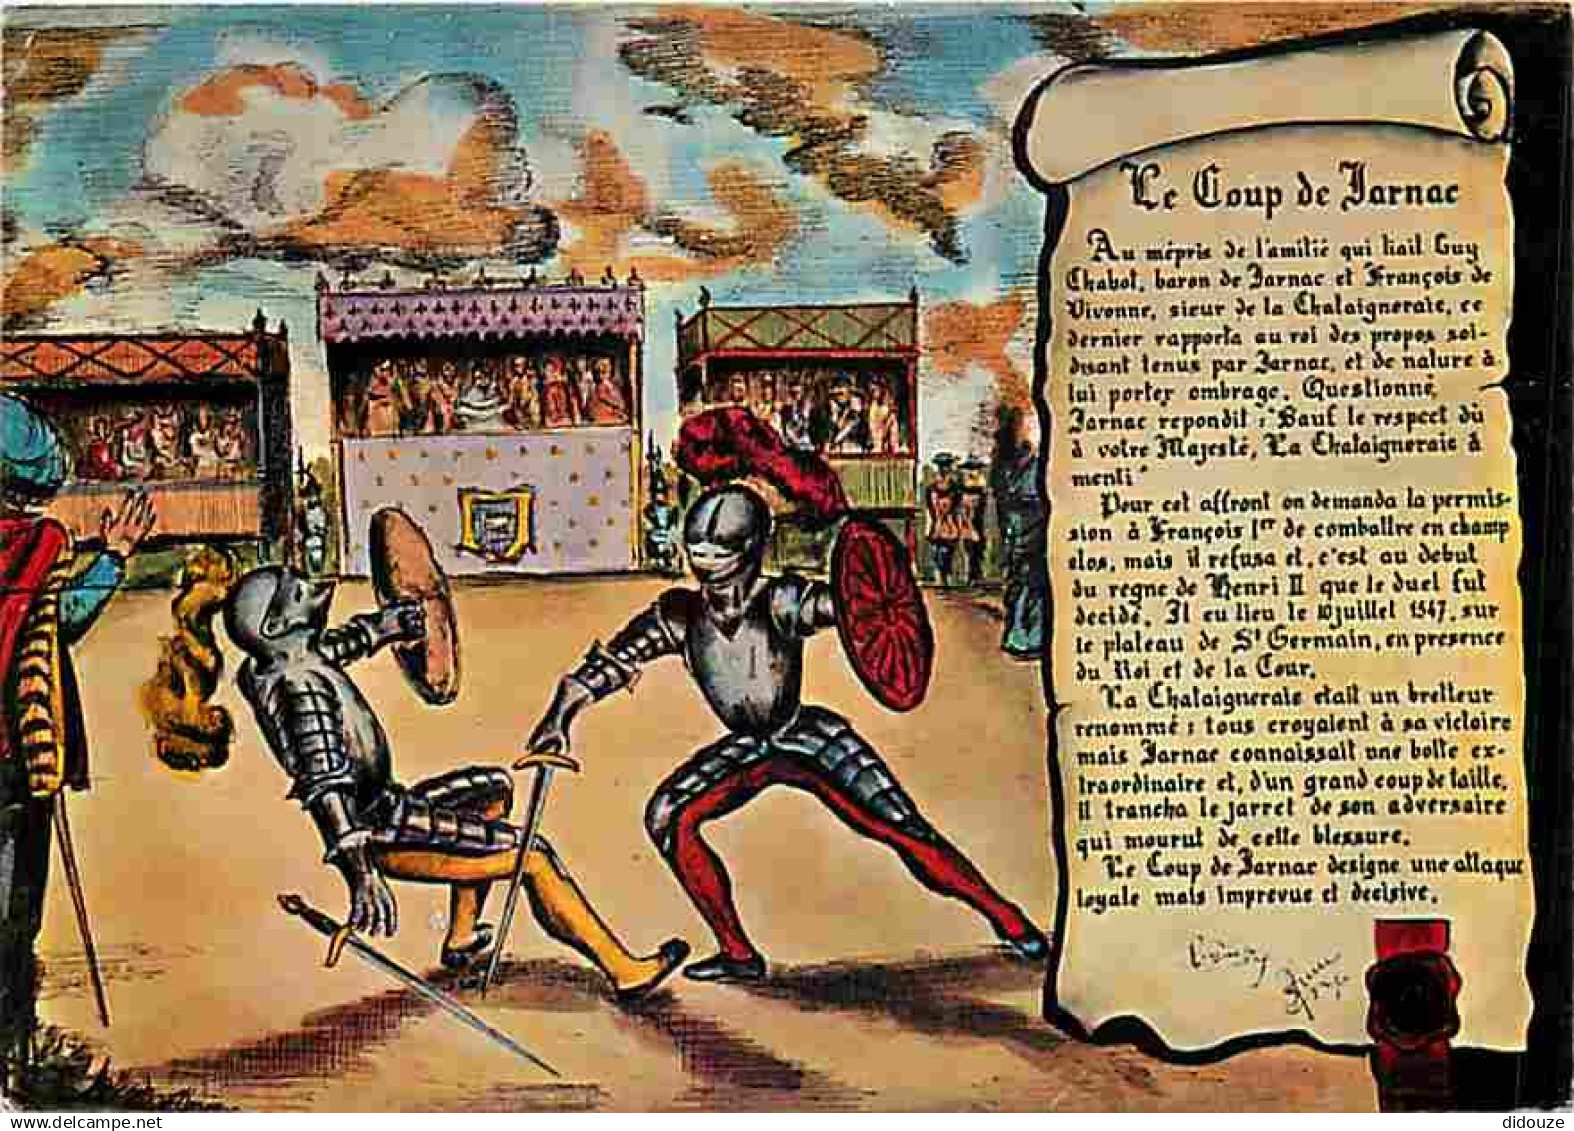 Le Coup de Jarnac
Au mépris de l'amitié qui liait Guy
Chabot, baron de Jarnac et François de
Vivonne, sieur de la Chataigneraie, ce
dernier rapporta au roi des propos soi-
disant tenus par Jarnac, et de nature à
lui porter ombrage. Questionné,
Jarnac repondit : "Sauf le respect dû
à votre Majesté, La Chataigneraie à
menti"
Pour cet affront on demanda la permis-
sion à François Ier de combattre en champ
clos, mais il refusa et, c'est au debut
du regne de Henri II que le duel fut
decidé. Il eu lieu le 10 juillet 1547, sur
le plateau de St Germain, en presence
du Roi et de la Cour.
La Chataigneraie etait un bretteur
renommé ; tous croyaient à sa victoire
mais Jarnac connaissait une botte ex-
traordinaire et, d'un grand coup de taille,
il trancha le jarret de son adversaire
qui mourut de cette blessure.
Le Coup de Jarnac designe une attaque
loyale mais imprevue et decisive.
didouze